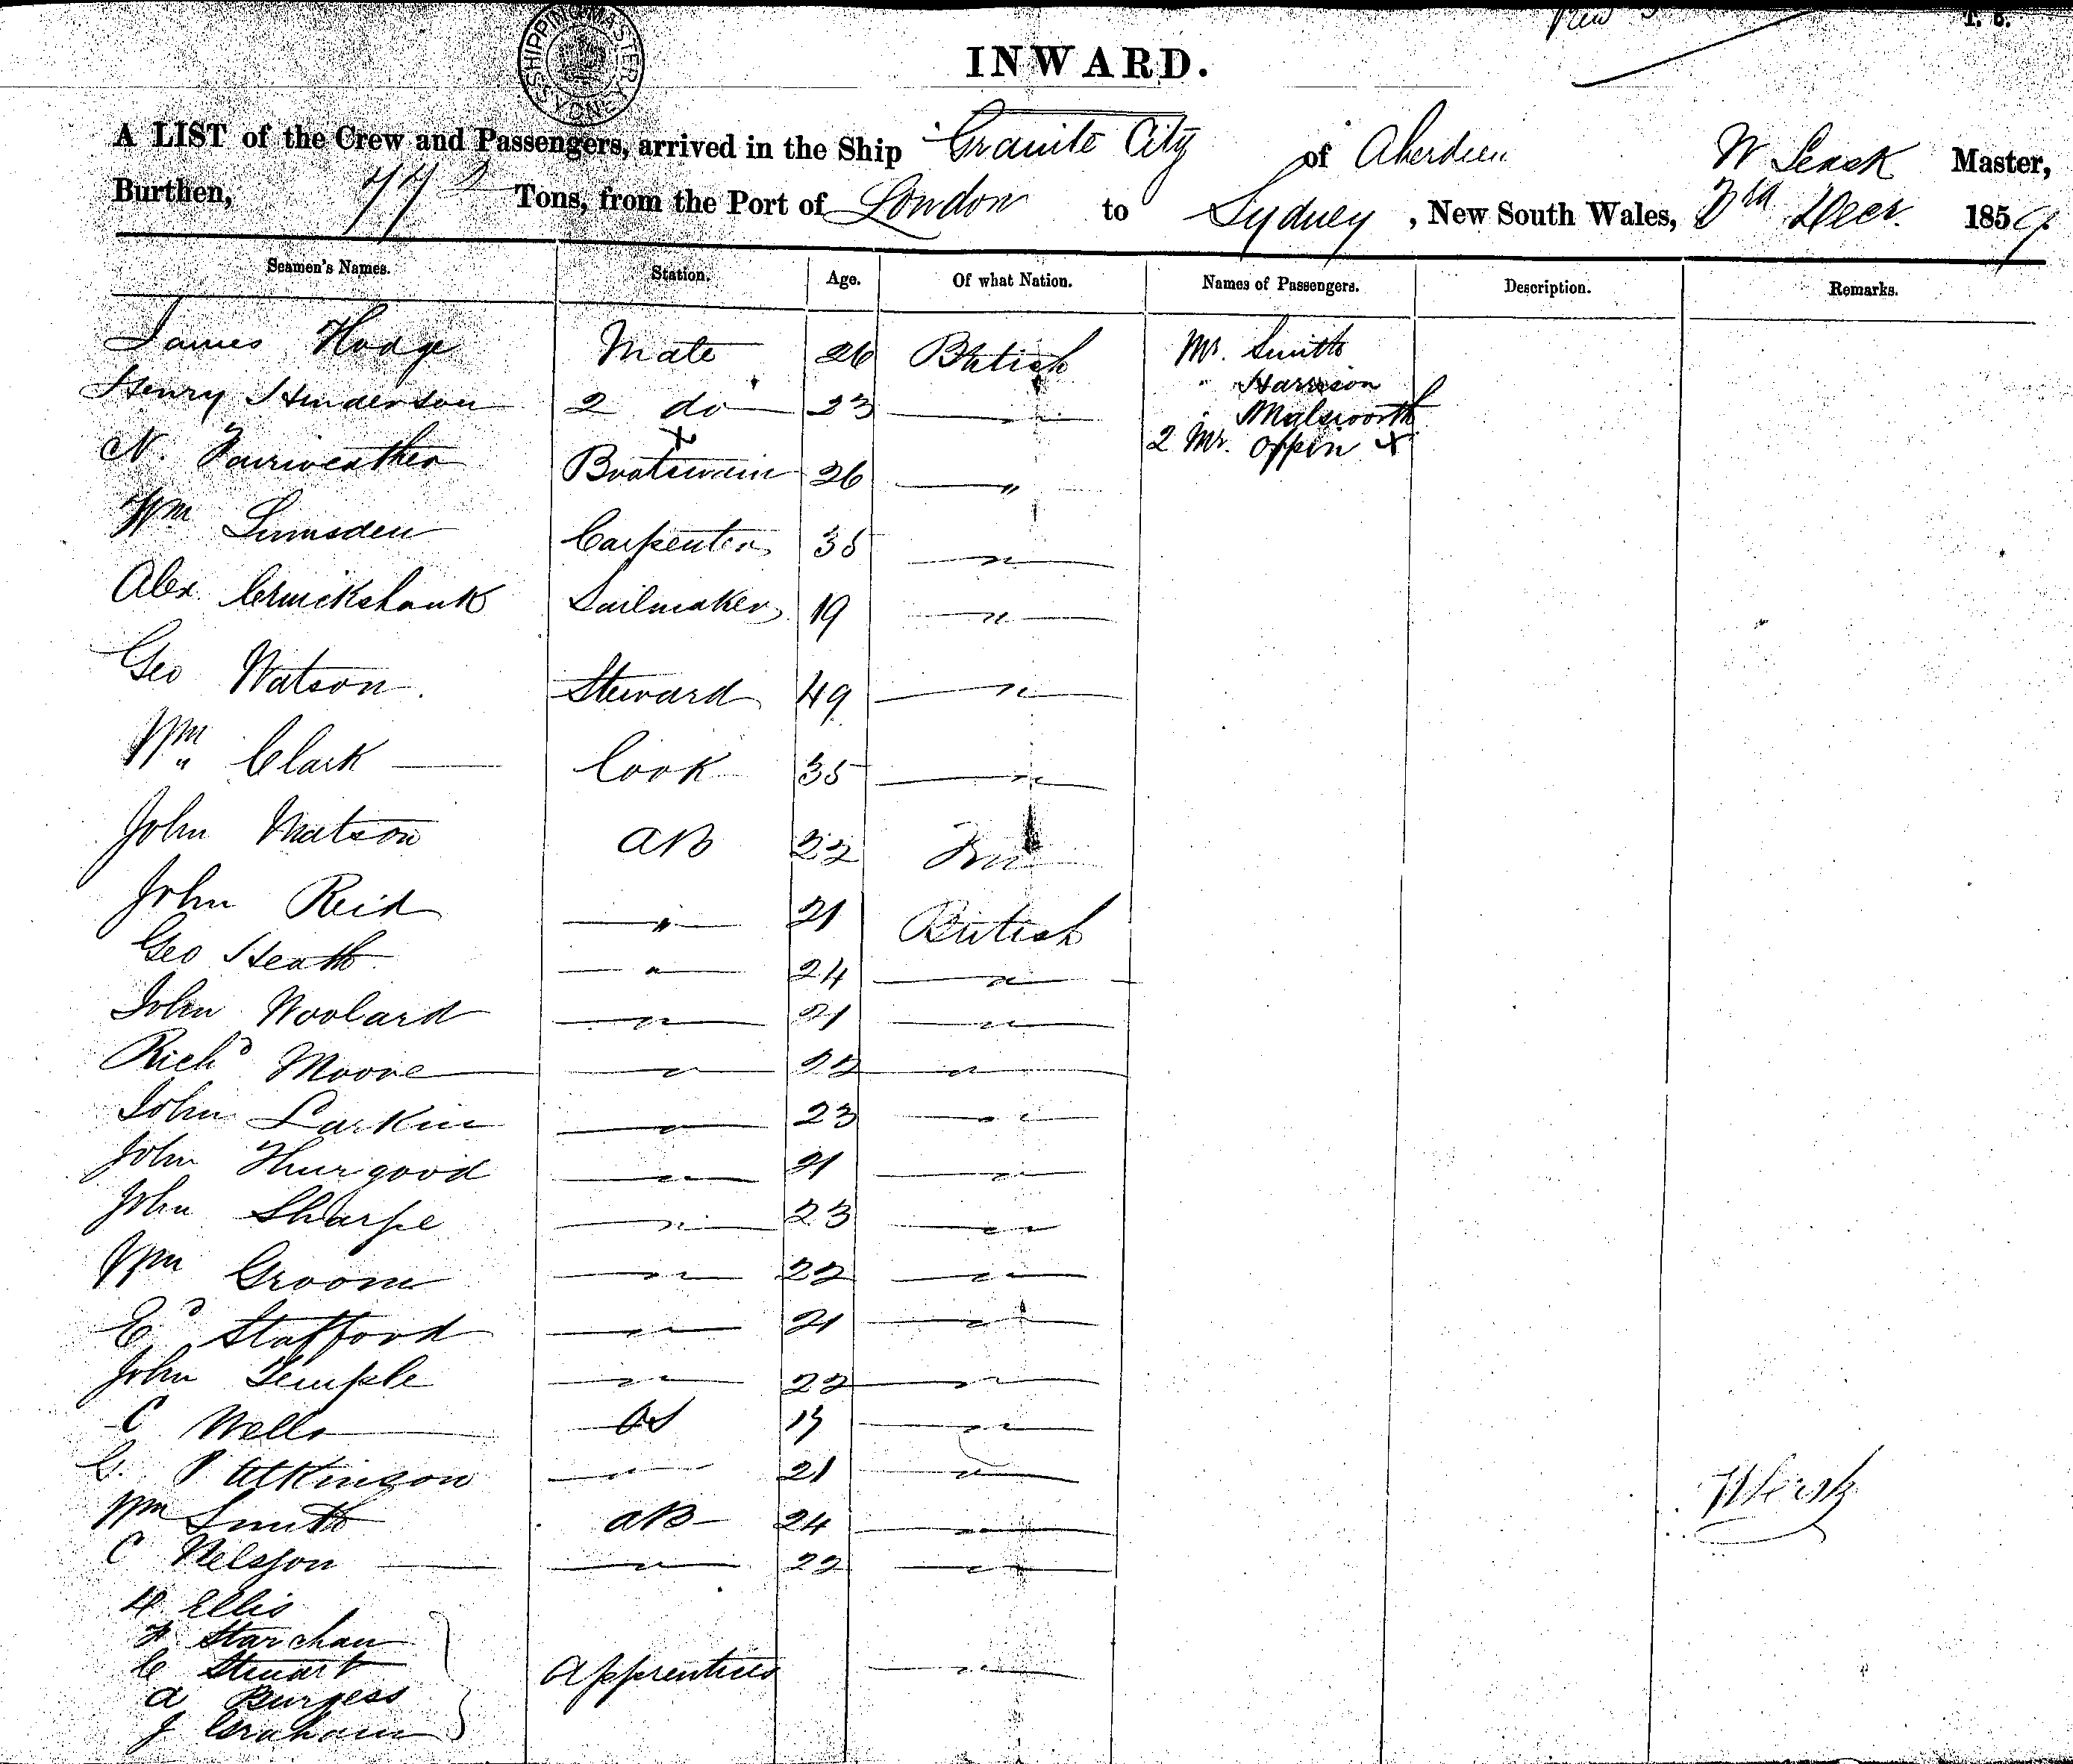 SHIPPING MASTER SYDNEY
T. 6.
INWARD.
A LIST of the Crew and Passengers, arrived in the Ship Granite City of Aberdeen W Leask Master,
Burthen, 772 Tons, from the Port of London to Sydney, New South Wales, 3rd Decr. 1859
Seamen's Names. Station. Age. Of what Nation. Names of Passengers. Description. Remarks.
James Hodge Mate 26 British Mr. Smith
" Harrison
Henry Henderson 2 do 23 " " Molesworth
2 Mr. Oppen x
N. Fairweather Boatswain 26 "
Wm Lumsden Carpenter 35 "
Alex. Cruickshank Sailmaker 19 "
Geo Watson Steward 49 "
Wm Clark Cook 35 "
John Matson AB 22
John Reid " 21 British
Geo Heath " 24 "
John Woolard " 21 "
Richd Moore " 22 "
John Larkin " 23 "
John Thurgood " 21 "
John Sharpe " 23 "
Wm Groom " 22 "
Ed Stafford " 21 "
John Temple " 22 "
C Wells OS 19 "
G. P Atkinson " 21 "
Wm Smith AB 24 "
C Nelson " 22 "
H Ellis
F Starchan
C Stewart Apprentices "
A Burgess
J Graham
W Leask